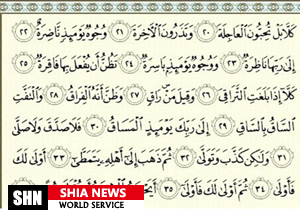 كَلَّا بَلْ تُحِبُّونَ الْعَاجِلَةَ ٢٠ وَتَذَرُونَ الْآخِرَةَ ٢١ وُجُوهٌ يَوْمَئِذٍ نَّاضِرَةٌ ٢٢
إِلَىٰ رَبِّهَا نَاظِرَةٌ ٢٣ وَوُجُوهٌ يَوْمَئِذٍ بَاسِرَةٌ ٢٤ تَظُنُّ أَن يُفْعَلَ بِهَا فَاقِرَةٌ ٢٥
كَلَّا إِذَا بَلَغَتِ التَّرَاقِيَ ٢٦ وَقِيلَ مَنْ رَاقٍ ٢٧ وَظَنَّ أَنَّهُ الْفِرَاقُ ٢٨ وَالْتَفَّتِ
السَّاقُ بِالسَّاقِ ٢٩ إِلَىٰ رَبِّكَ يَوْمَئِذٍ الْمَسَاقُ ٣٠ فَلَا صَدَّقَ وَلَا صَلَّىٰ
٣١ وَلَٰكِن كَذَّبَ وَتَوَلَّىٰ ٣٢ ثُمَّ ذَهَبَ إِلَىٰ أَهْلِهِ يَتَمَطَّىٰ ٣٣ أَوْلَىٰ لَكَ
فَأَوْلَىٰ ٣٤ ثُمَّ أَوْلَىٰ لَكَ فَأَوْلَىٰ ٣٥
SHN SHIA NEWS
WORLD SERVICE